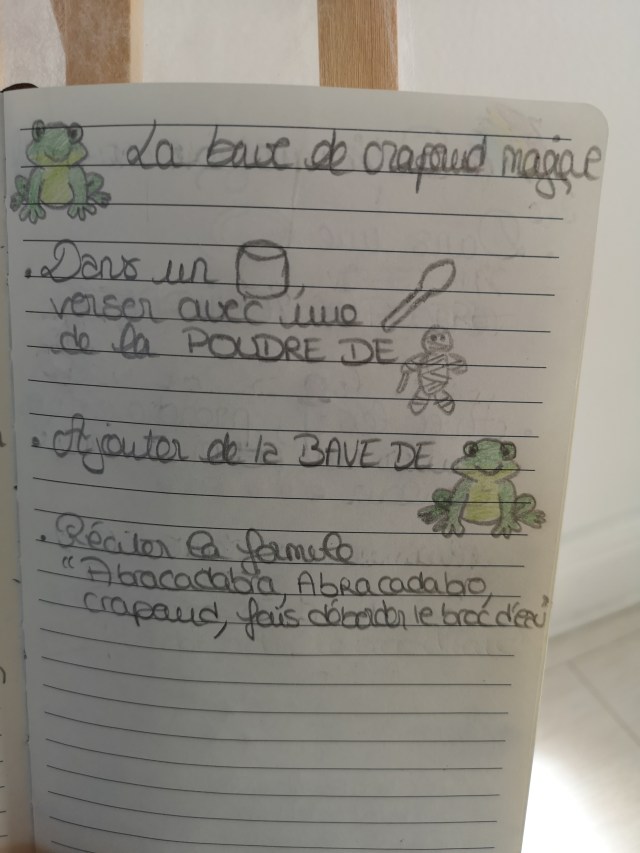 La bave de crapaud magique
. Dans un ,
verser avec une
de la POUDRE DE
. Ajouter de la BAVE DE
. Réciter la formule
"Abracadabra, AbRacadabo,
crapaud, fais déborder le broc d'eau"